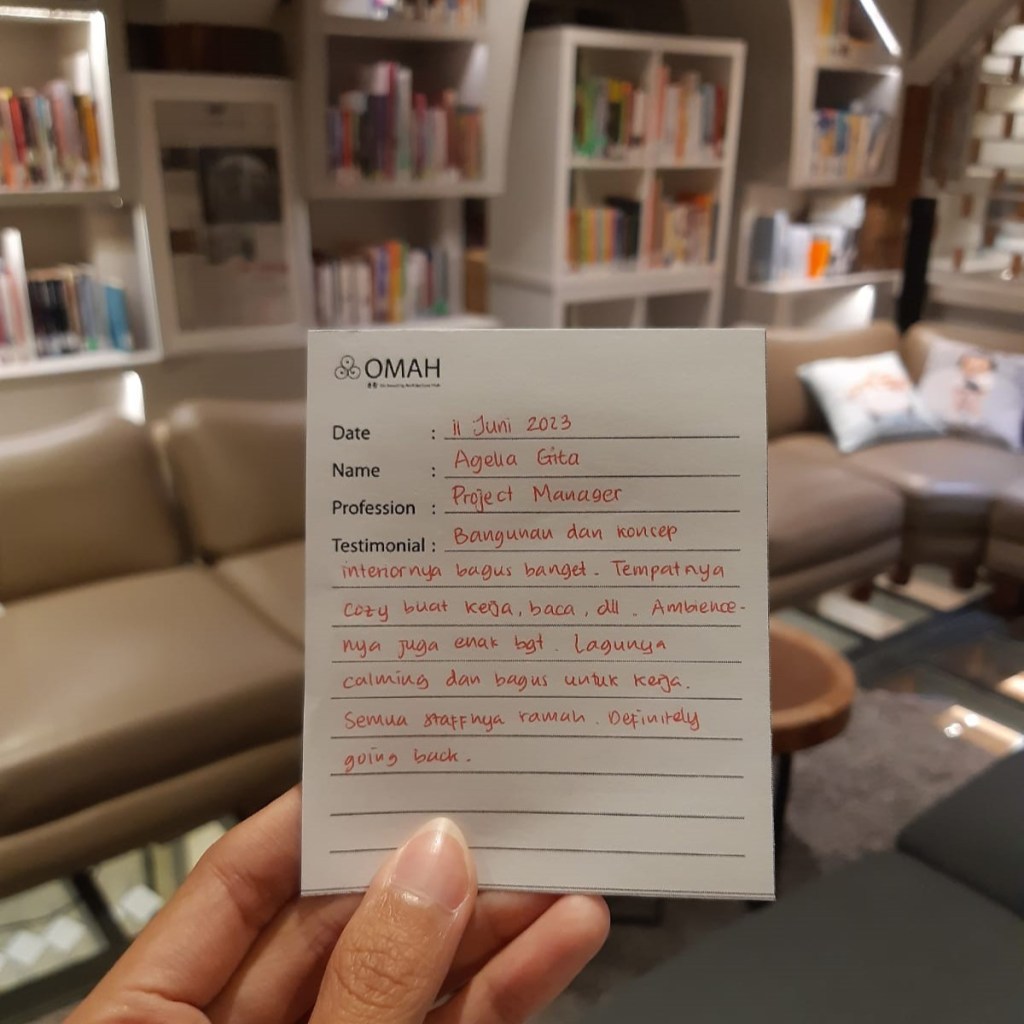 OMAH
Date : 11 Juni 2023
Name : Agelia Gita
Profession : Project Manager
Testimonial : Bangunan dan konsep
interiornya bagus banget. Tempatnya
cozy buat kerja, baca, dll. Ambience-
nya juga enak bgt. Lagunya
calming dan bagus untuk kerja.
Semua staffnya ramah. Definitely
going back.